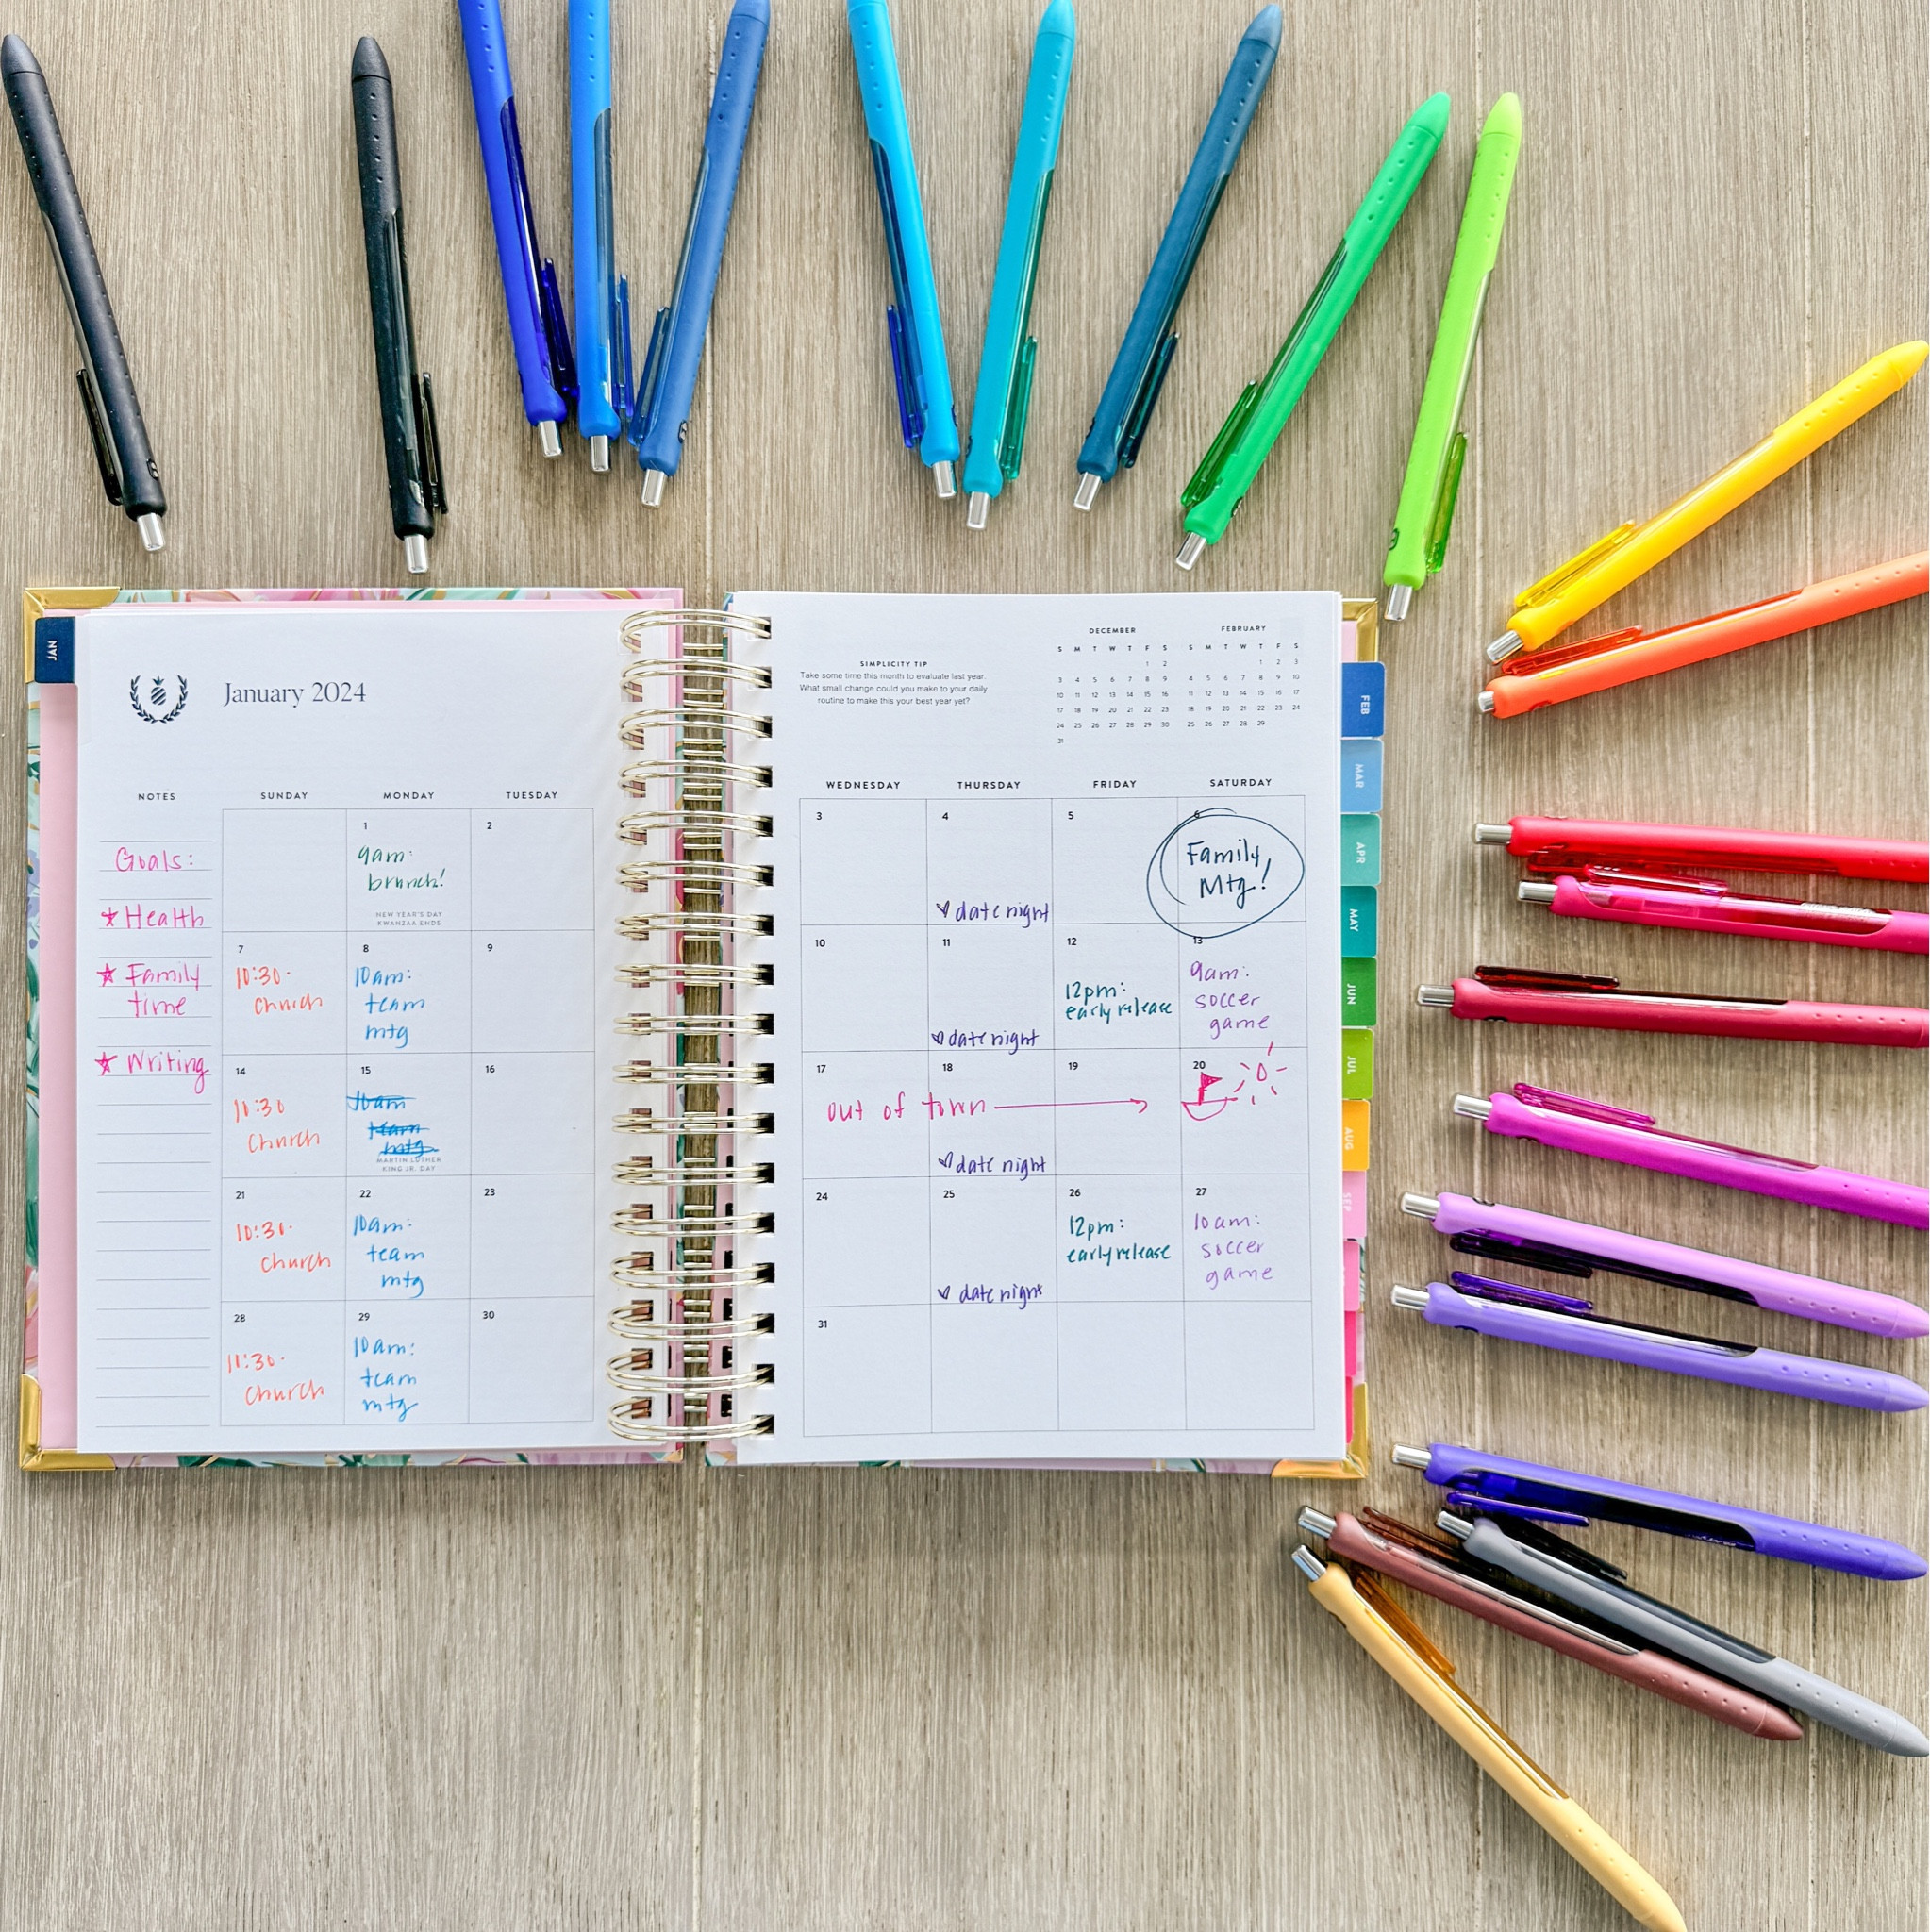 JAN
January 2024
NOTES
SUNDAY MONDAY TUESDAY
Goals:
★ Health
★ Family
time
★ Writing
1 2
9am:
brunch!
NEW YEAR'S DAY
KWANZAA ENDS
7 8 9
10:30
church
10am:
team
mtg
14 15 16
10:30
church
10am
team
mtg
MARTIN LUTHER
KING JR. DAY
21 22 23
10:30
church
10am:
team
mtg
28 29 30
11:30
church
10am:
team
mtg
SIMPLICITY TIP
Take some time this month to evaluate last year.
What small change could you make to your daily
routine to make this your best year yet?
DECEMBER
S M T W T F S
1 2
3 4 5 6 7 8 9
10 11 12 13 14 15 16
17 18 19 20 21 22 23
24 25 26 27 28 29 30
31
FEBRUARY
S M T W T F S
1 2 3
4 5 6 7 8 9 10
11 12 13 14 15 16 17
18 19 20 21 22 23 24
25 26 27 28 29
WEDNESDAY THURSDAY FRIDAY SATURDAY
3 4 5 6
♡ date night
Family
Mtg!
10 11 12 13
♡ date night
12pm:
early release
9am:
soccer
game
17 18 19 20
out of town
♡ date night
24 25 26 27
♡ date night
12pm:
early release
10am:
soccer
game
31
FEB
MAR
APR
MAY
JUN
JUL
AUG
SEP